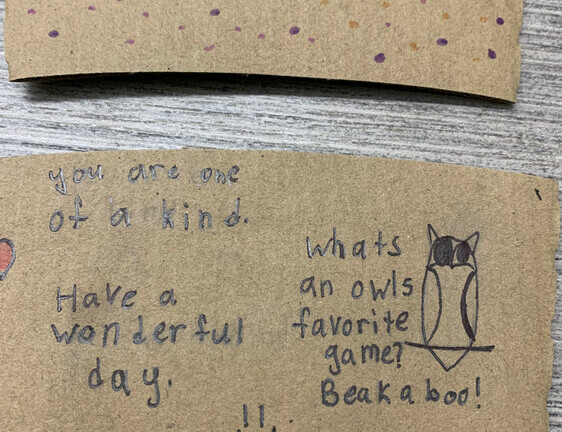 you are one
of a kind.
Have a
wanderful
day.
whats
an owls
favorite
game?
Beak a boo!
!!.